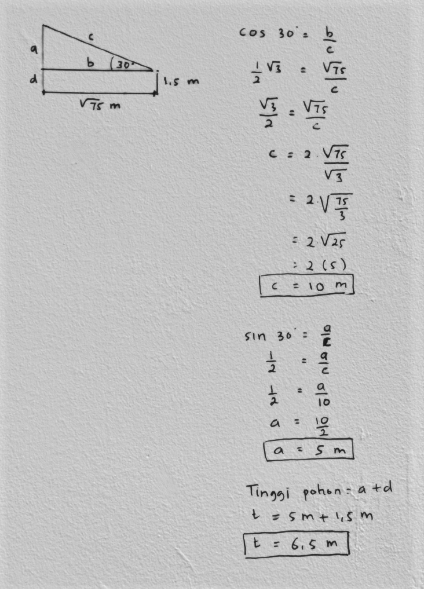 a c
b (30°
d 1,5 m
√75 m
cos 30° = b/c
1/2 √3 = √75/c
√3/2 = √75/c
c = 2 · √75/√3
= 2 √75/3
= 2 √25
= 2 (5)
c = 10 m
sin 30° = a/c
1/2 = a/c
1/2 = a/10
a = 10/2
a = 5 m
Tinggi pohon = a + d
t = 5 m + 1,5 m
t = 6,5 m